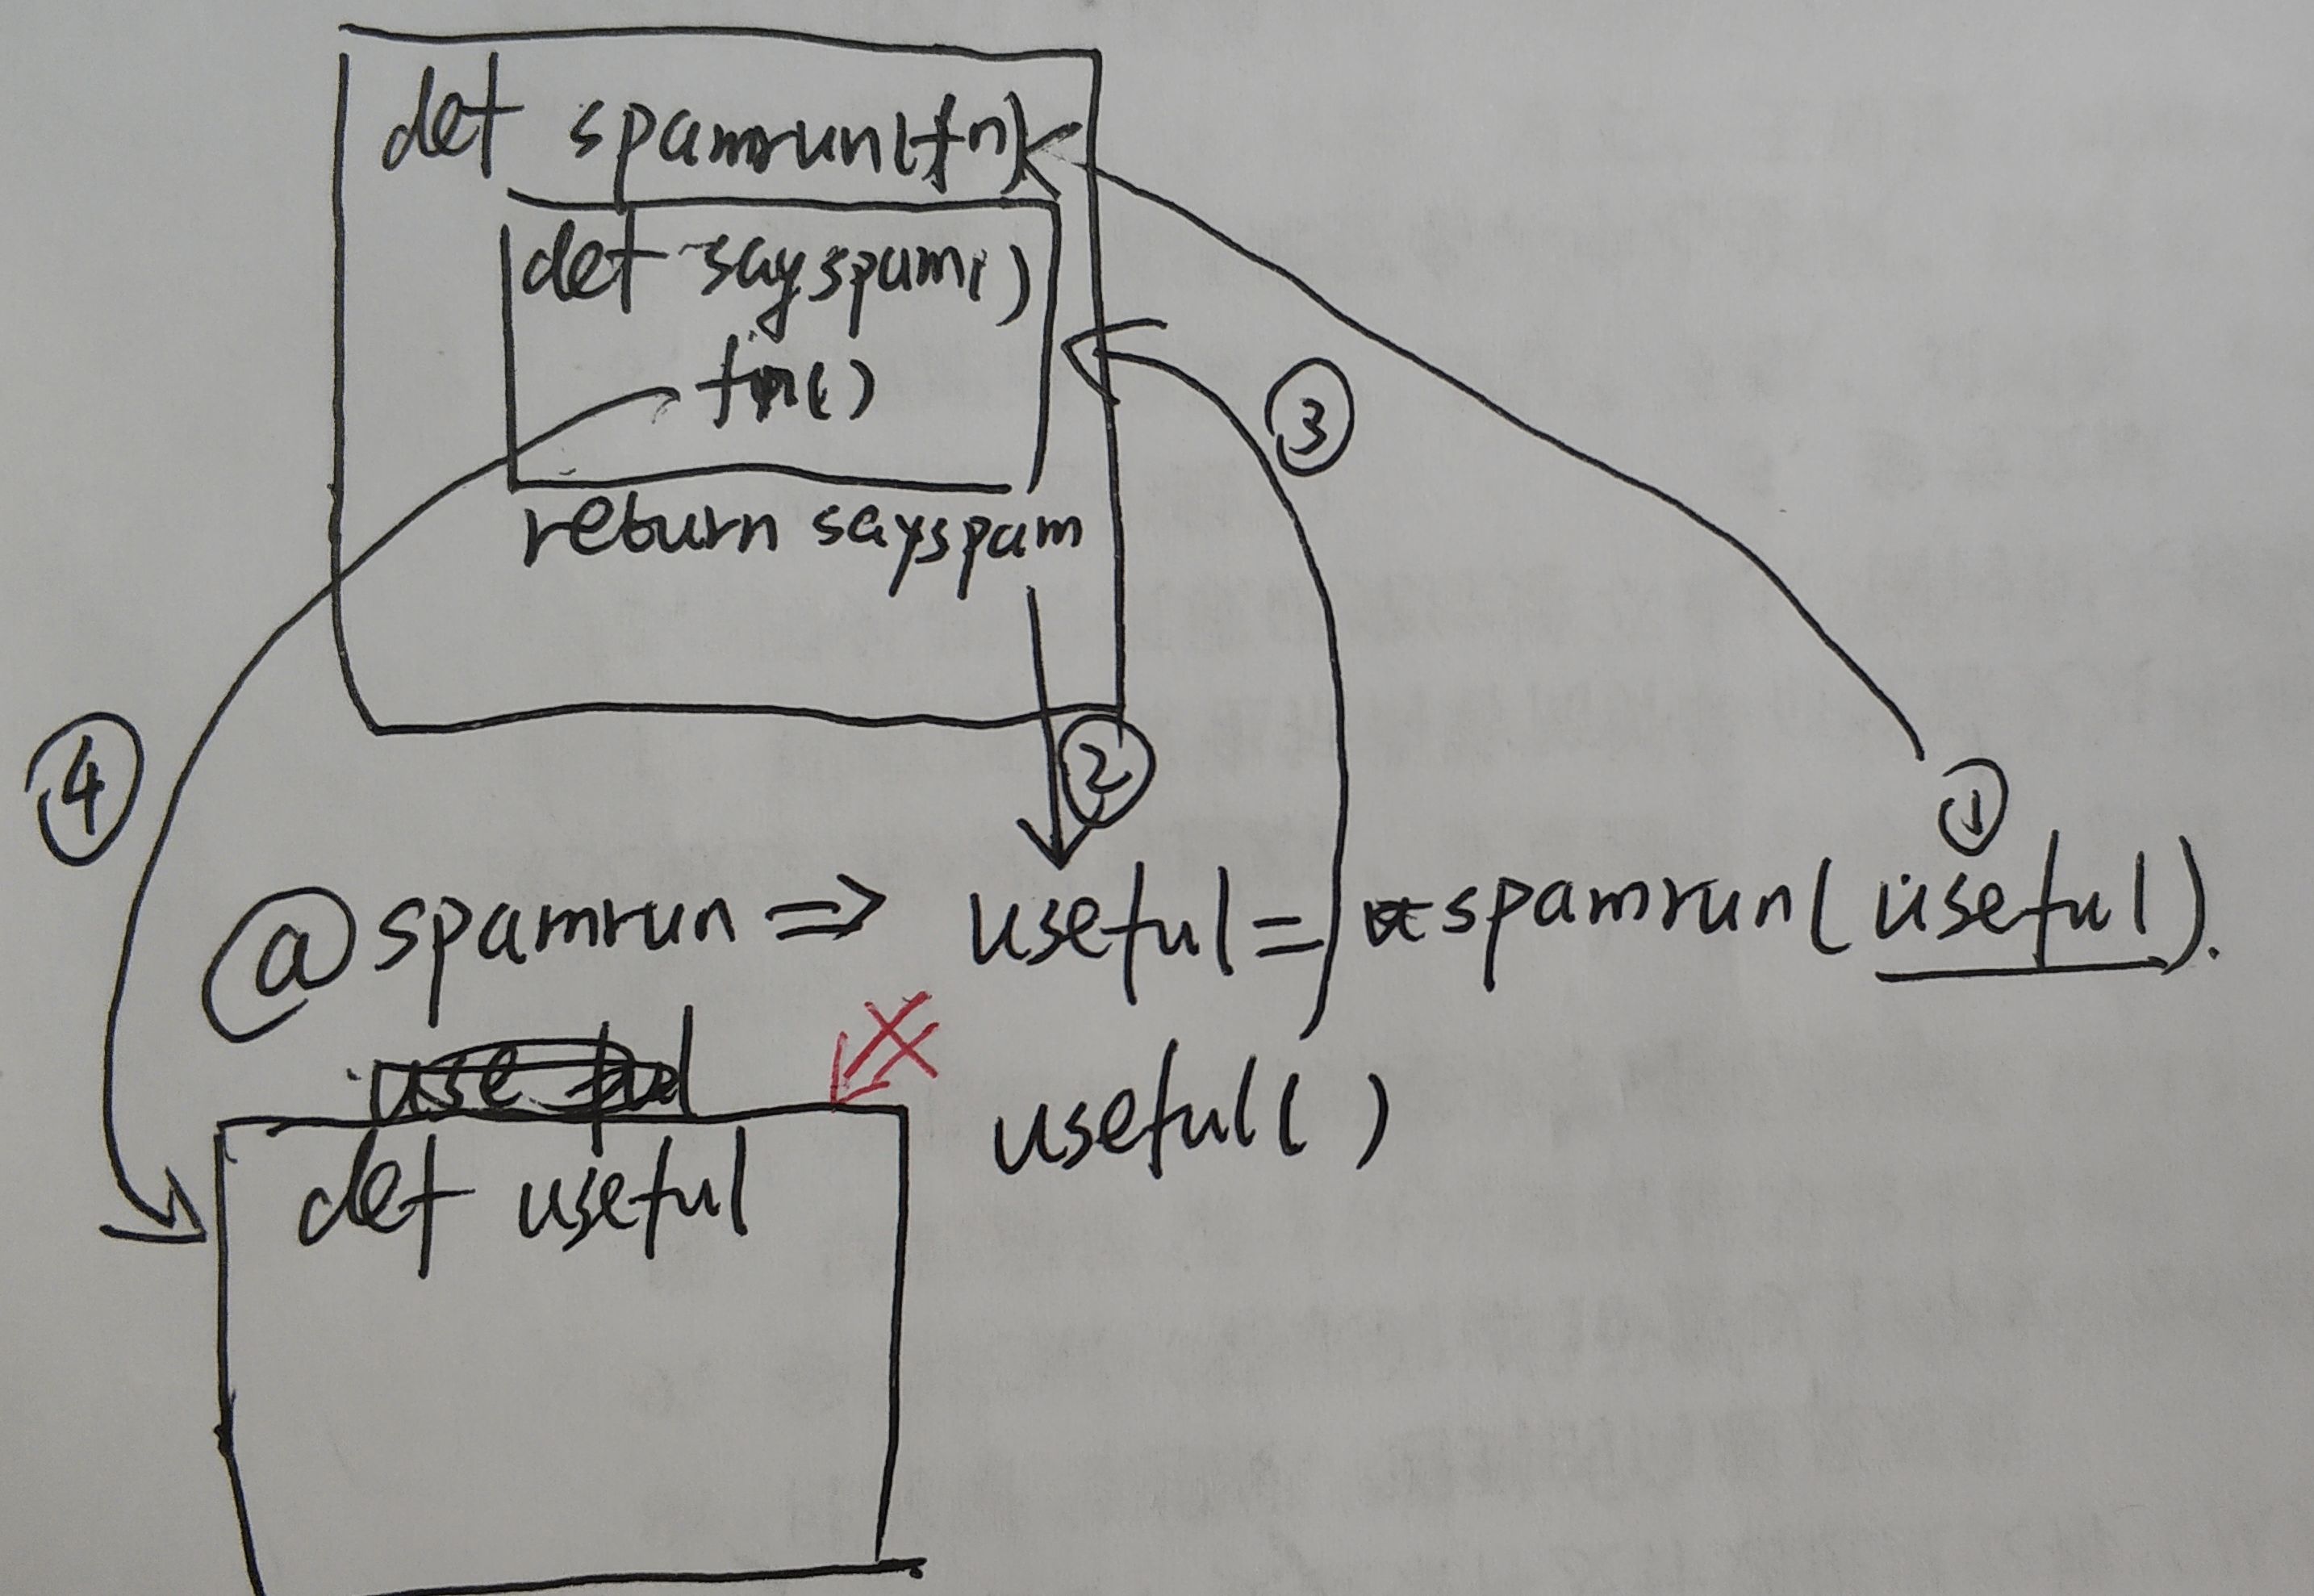 def spamrun(fn)
def sayspam()
fn()
return sayspam
③
④
②
①
@spamrun => useful = spamrun(useful).
useful()
def useful